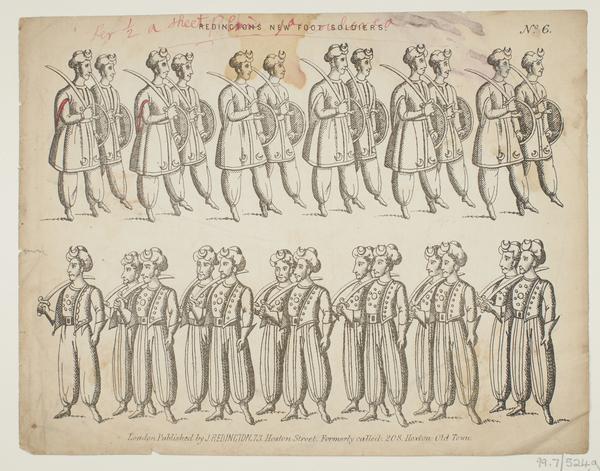 for ½ a sheet
REDINGTON'S NEW FOOT SOLDIERS.
No. 6.
London Published by J. REDINGTON, 73, Hoxton Street, Formerly called, 208, Hoxton Old Town.
99.7/524a